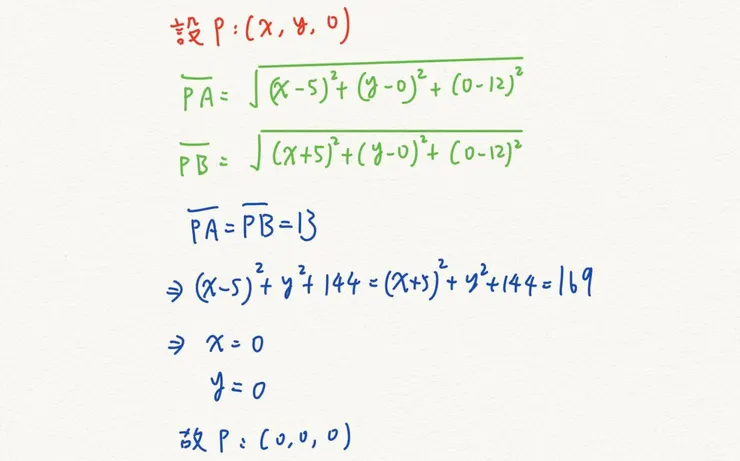 設 P:(x, y, 0)
PA = √(x-5)²+(y-0)²+(0-12)²
PB = √(x+5)²+(y-0)²+(0-12)²
PA = PB = 13
⇒ (x-5)²+y²+144=(x+5)²+y²+144=169
⇒ x = 0
y = 0
故 P:(0,0,0)